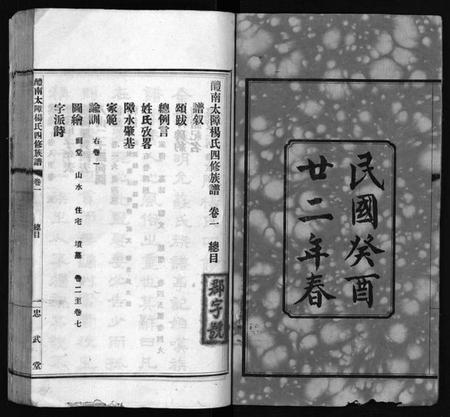 民國癸酉
廿二年春
醴南太障楊氏四修族譜 卷一 總目
譜叙
頌跋
總例言
姓氏攷畧
障水肇基
家範
諭訓 右卷一
圖繪 祠堂 山水 住宅 墳墓 卷二至卷七
字派詩
醴南太障楊氏四修族譜 卷一 總目 一 忠武堂
郡字號